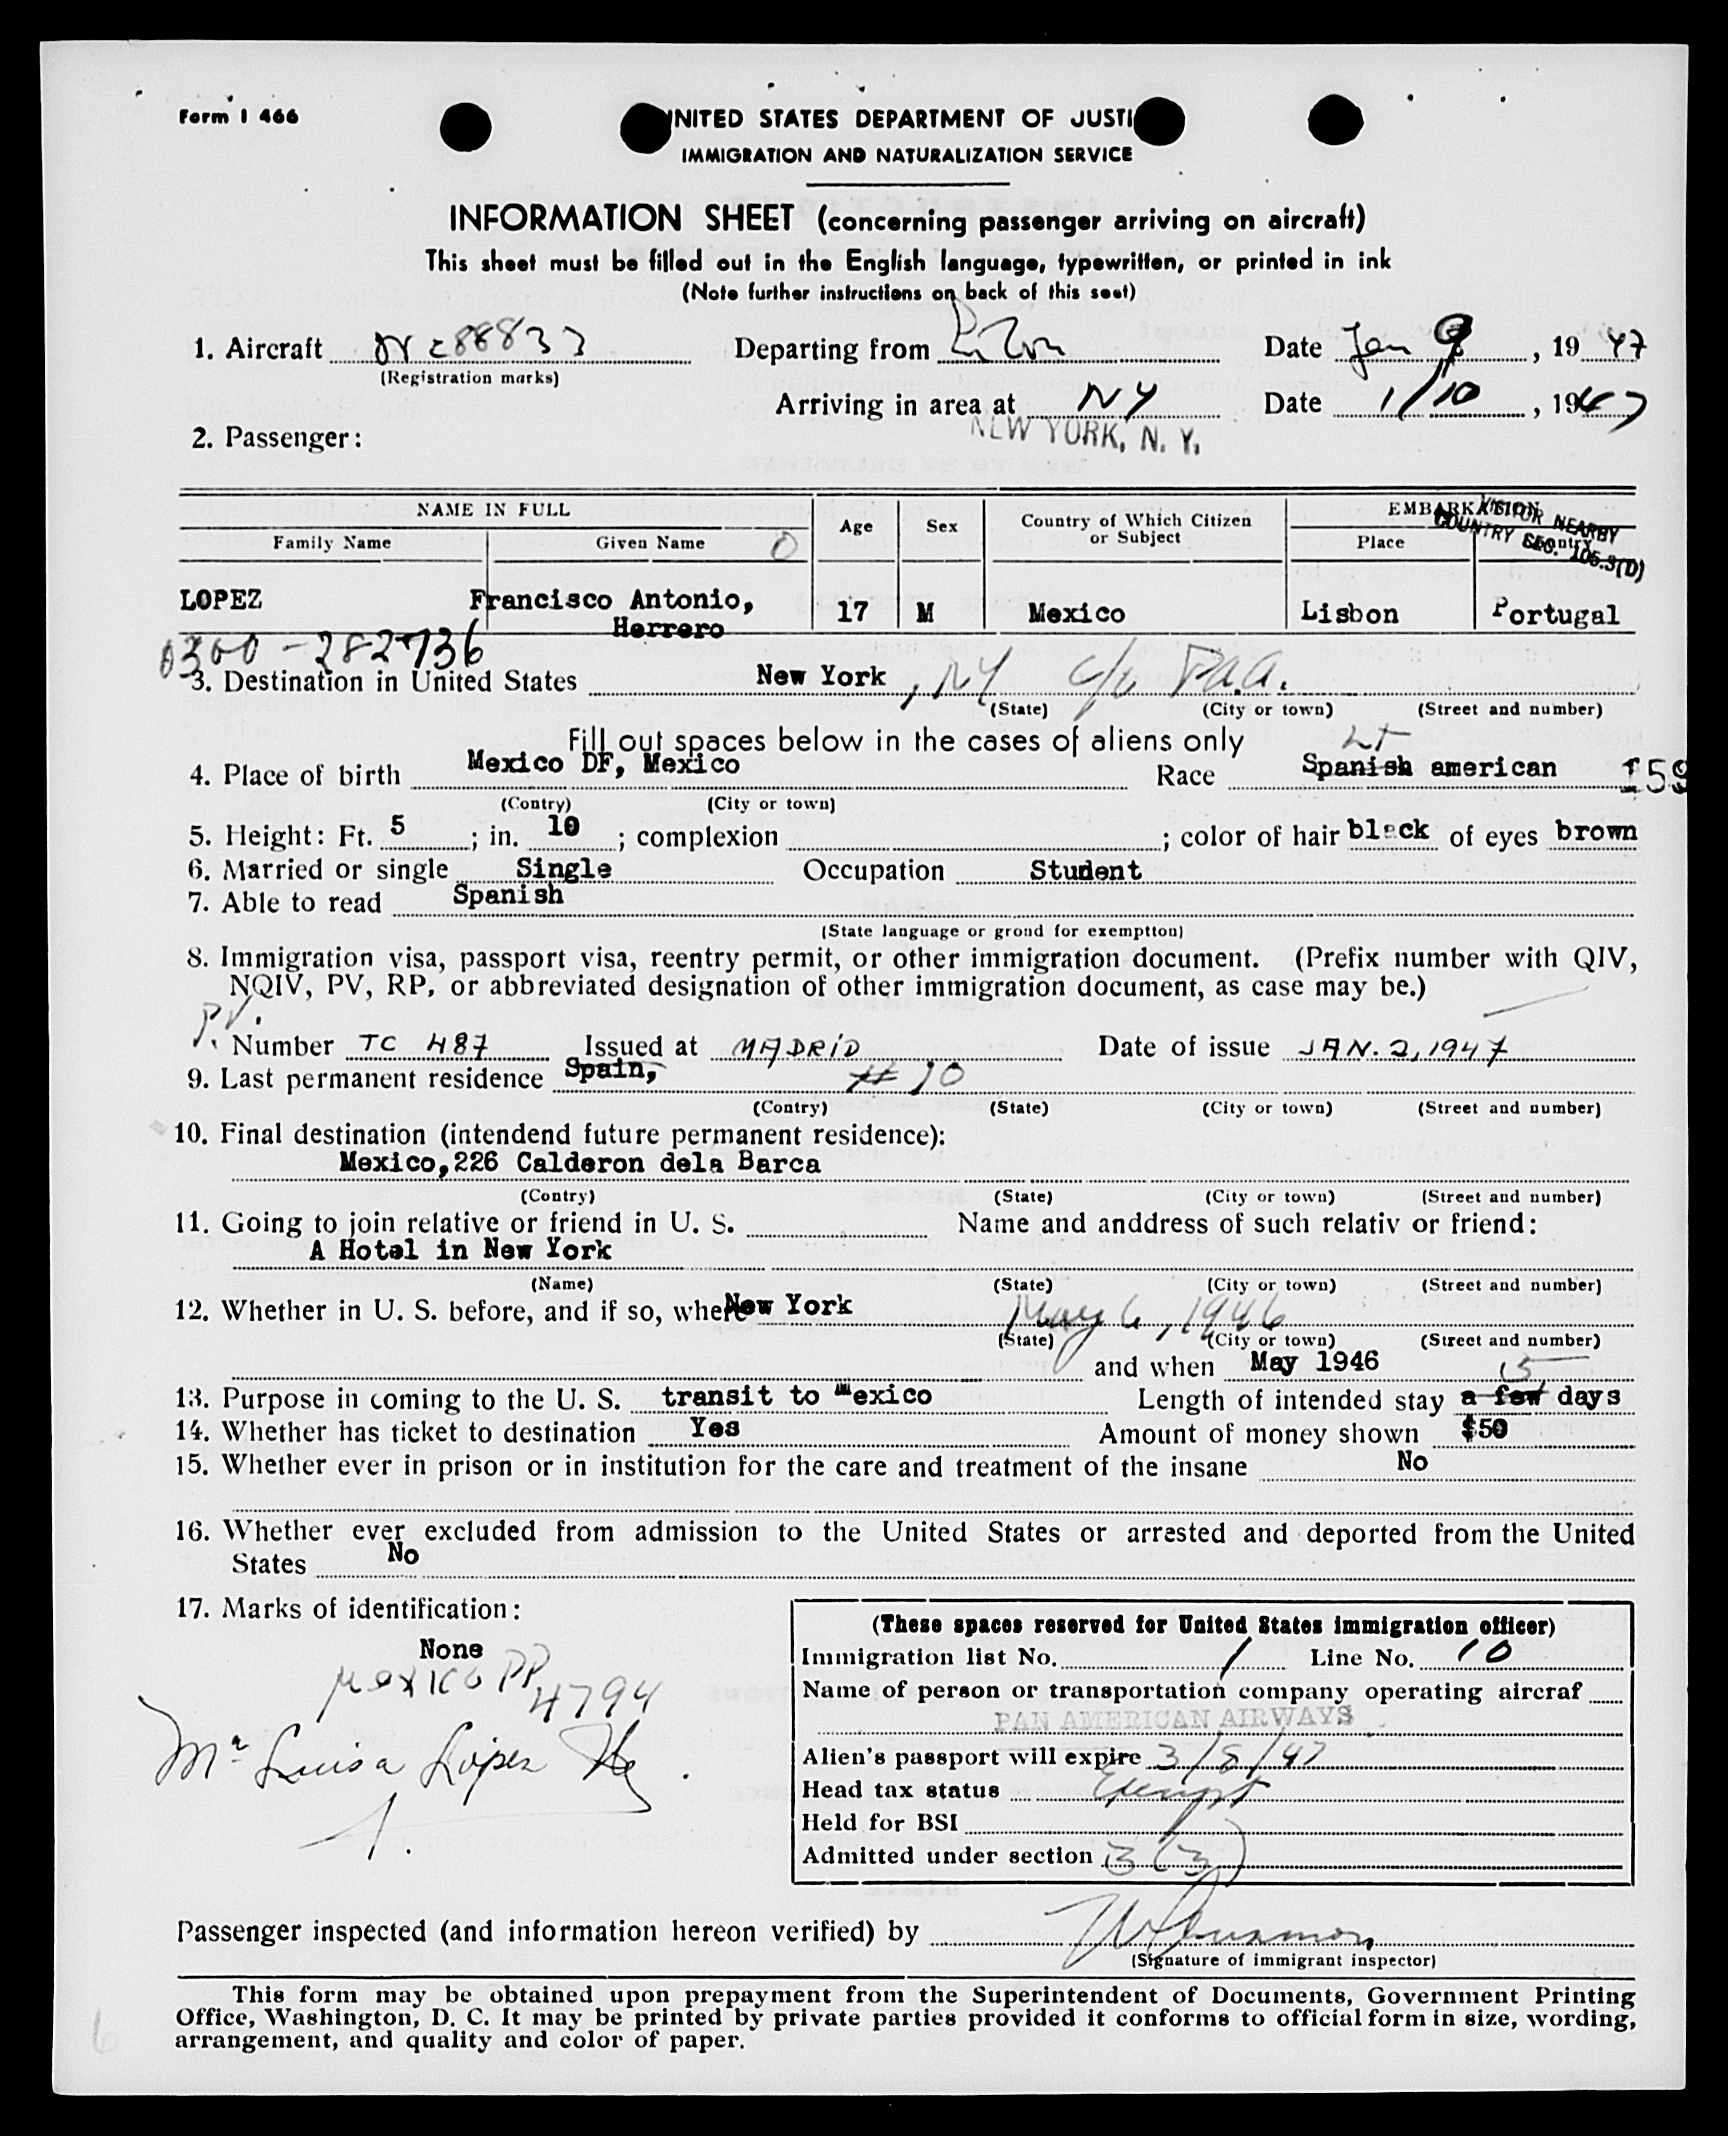 Form I 466
UNITED STATES DEPARTMENT OF JUSTI
IMMIGRATION AND NATURALIZATION SERVICE
INFORMATION SHEET (concerning passenger arriving on aircraft)
This sheet must be filled out in the English language, typewritten, or printed in ink
(Note further instructions on back of this seet)
1. Aircraft NC 88833 Departing from Lisbon Date Jan 9, 1947
(Registration marks)
Arriving in area at NY Date 1/10, 1947
NEW YORK, N. Y.
2. Passenger:
NAME IN FULL Age Sex Country of Which Citizen or Subject EMBARKATION
VISITOR NEARBY
COUNTRY SEC. 105.3(D)
Family Name Given Name Place Country
LOPEZ Francisco Antonio, 17 M Mexico Lisbon Portugal
Herrero
0300-282736
3. Destination in United States New York, NY c/o P.A.A.
(State) (City or town) (Street and number)
Fill out spaces below in the cases of aliens only
4. Place of birth Mexico DF, Mexico Race Spanish american 159
(Contry) (City or town)
5. Height: Ft. 5; in. 10; complexion ; color of hair black of eyes brown
6. Married or single Single Occupation Student
7. Able to read Spanish
(State language or grond for exemptton)
8. Immigration visa, passport visa, reentry permit, or other immigration document. (Prefix number with QIV,
NQIV, PV, RP, or abbreviated designation of other immigration document, as case may be.)
P.V.
Number TC 487 Issued at MADRID Date of issue JAN. 2, 1947
9. Last permanent residence Spain, # 10
(Contry) (State) (City or town) (Street and number)
10. Final destination (intendend future permanent residence):
Mexico,226 Calderon dela Barca
(Contry) (State) (City or town) (Street and number)
11. Going to join relative or friend in U. S. Name and anddress of such relativ or friend:
A Hotel in New York
(Name) (State) (City or town) (Street and number)
12. Whether in U. S. before, and if so, where New York May 6, 1946
(State) (City or town) (Street and number)
and when May 1946
15
13. Purpose in coming to the U. S. transit to Mexico Length of intended stay a few days
14. Whether has ticket to destination Yes Amount of money shown $50
15. Whether ever in prison or in institution for the care and treatment of the insane No
16. Whether ever excluded from admission to the United States or arrested and deported from the United
States No
17. Marks of identification:
None
Mexico PP 4794
Ma Luisa Lopez
(These spaces reserved for United States immigration officer)
Immigration list No. 1 Line No. 10
Name of person or transportation company operating aircraf
PAN AMERICAN AIRWAYS
Alien's passport will expire 3/8/47
Head tax status Exempt
Held for BSI
Admitted under section 3(3)
Passenger inspected (and information hereon verified) by
(Signature of immigrant inspector)
This form may be obtained upon prepayment from the Superintendent of Documents, Government Printing
Office, Washington, D. C. It may be printed by private parties provided it conforms to official form in size, wording,
arrangement, and quality and color of paper.
6